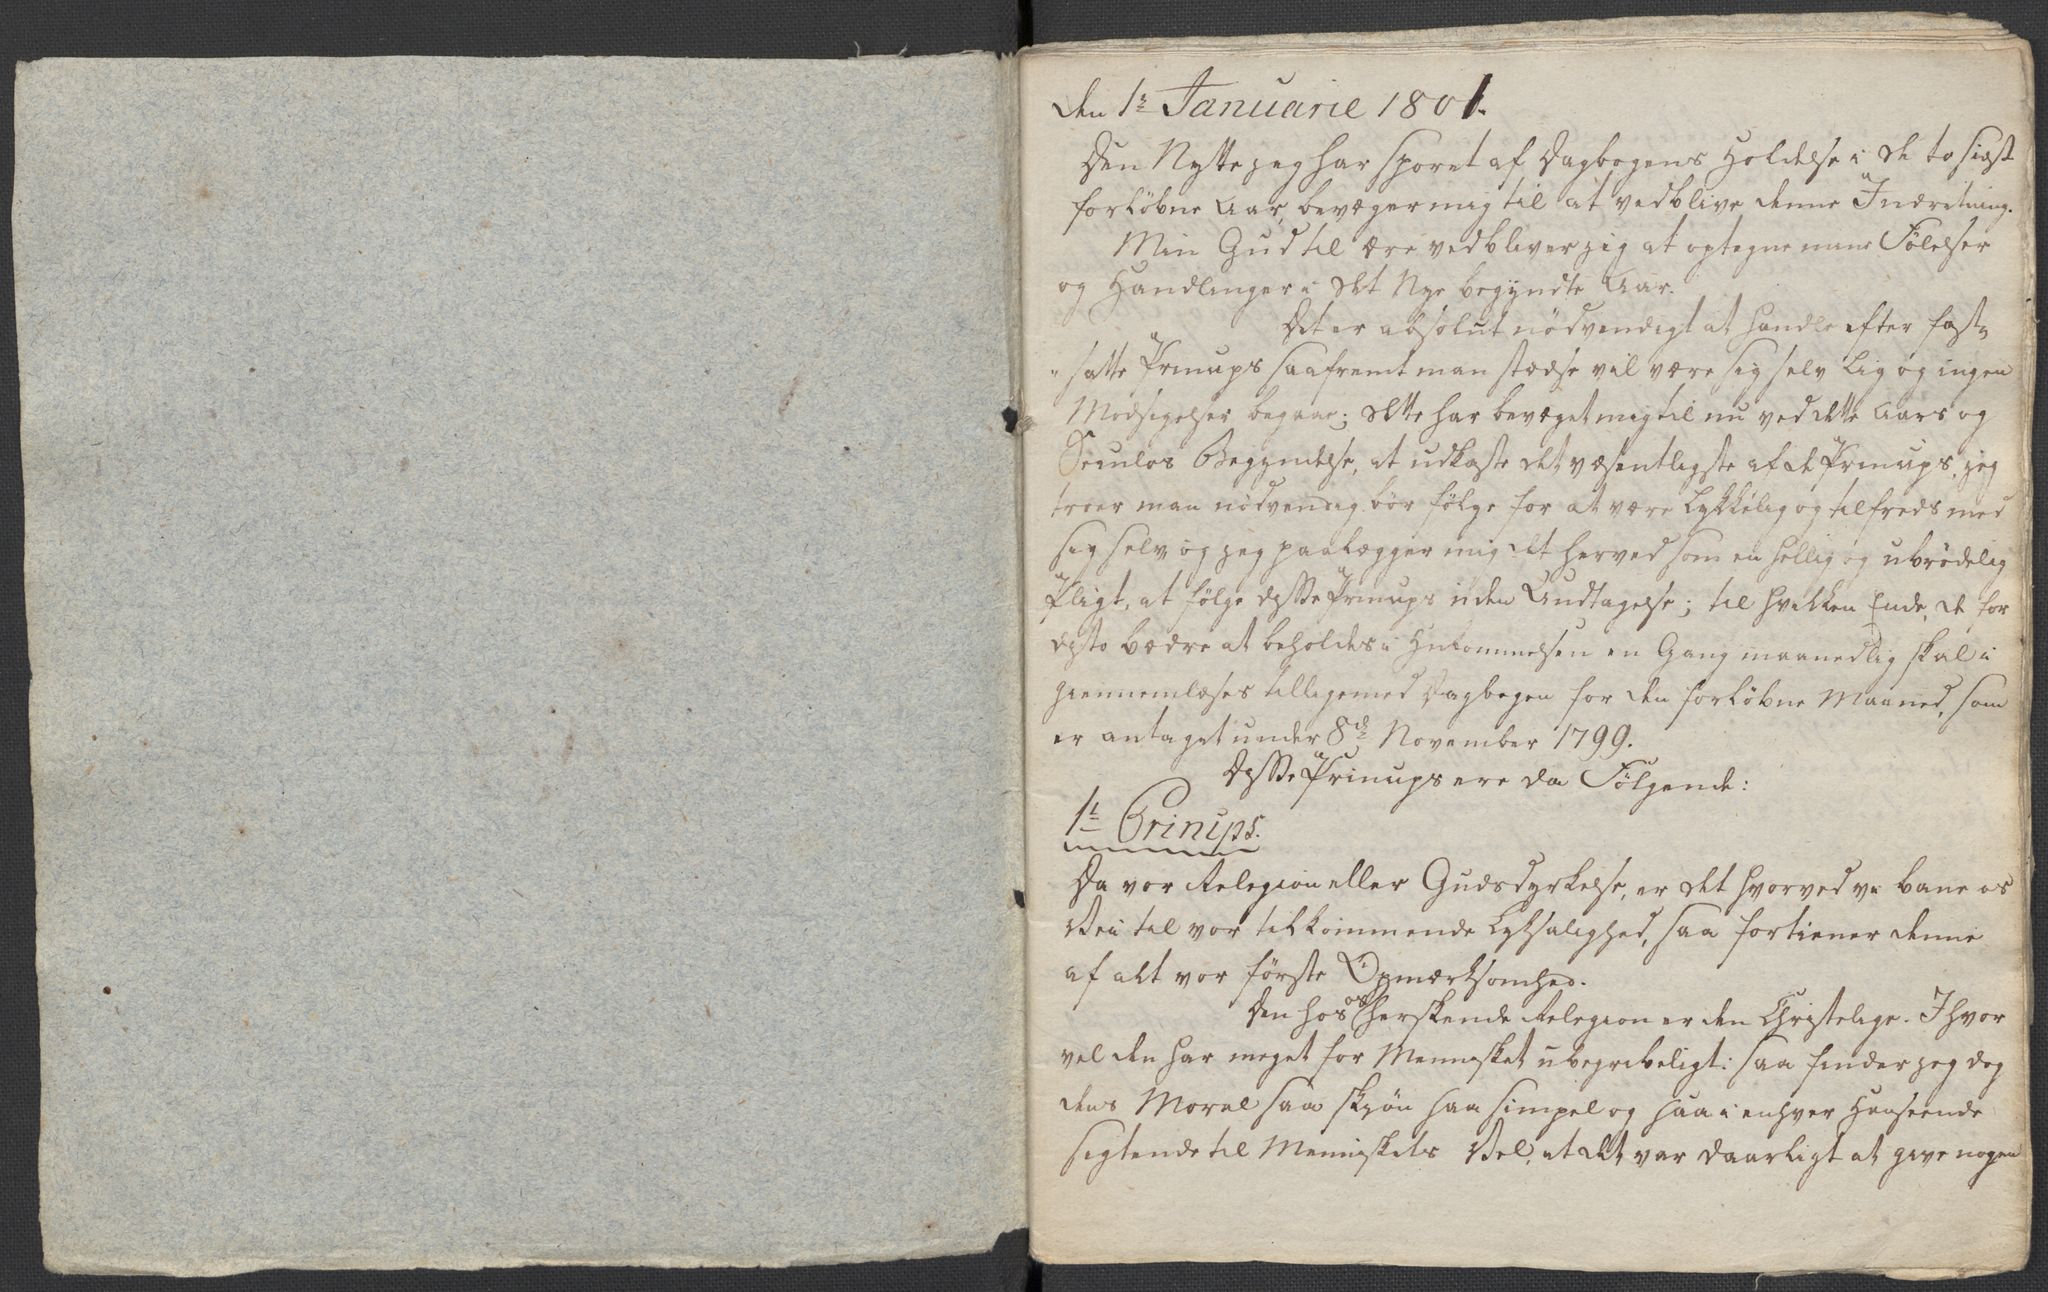 den 1te Januarie 1801.
Den Nytte jeg har sporet af Dagbogens Holdelse i de to sidst
forløbne Aar, bevæger mig til at vedblive denne Indretning.
Min Gud til ære vedbliver jeg at optegne mine Følelser
og Handlinger i det Nye begyndte Aar.
Det er absolut nødvendigt at handle efter fast„
„satte Princips saafremt man stedse vil være sig selv lig og ingen
Modsigelser begaae; dette har bevæget mig til nu ved dette Aars og
Seculos Begyndelse, at udkaste det væsentligste af de Princips, jeg
troer man nødvendig bør følge for at være lykkelig og tilfreds med
sig selv og jeg paalægger mig det herved som en hellig og ubrødelig
Pligt, at følge disse Princips uden Undtagelse; til hvilken Ende, de for
desto bedre at beholdes i Hukommelsen en Gang maanedlig skal i
giennemlæses tilligemed Dagbogen for den forløbne Maaned, som
er antaget under 8de November 1799.
Disse Princips ere da Følgende:
1te Princips.
Da vor Relegion eller Gudsdyrkelse, er det hvorved vi bane os
Vei til vor tilkommende Lyksalighed, saa fortiener denne
af alt vor første Opmærksomhed.
Den hos os herskende Relegion er den Christelige. Ihvor
vel den har meget for Mennisket ubegribeligt: saa finder jeg dog
dens Moral saa skjøn saa simpel og saa i enhver Henseende
sigtende til Menniskets Vel, at det var daarligt at give nogen